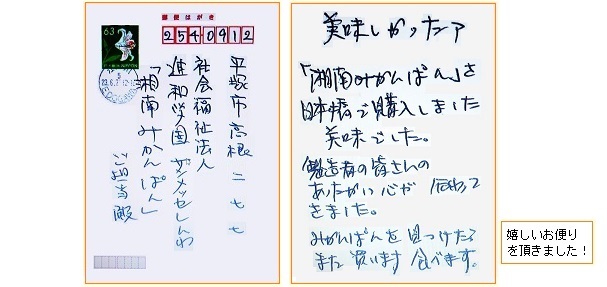 郵便はがき
63
2540912
平塚市高根二七七
社会福祉法人
進和学園 サンメッセしんわ
「湘南みかんぱん」
ご担当殿
美味しかったァ
「湘南みかんぱん」を
日本橋で購入しました
美味でした。
製造者の皆さんの
あたたかい心が 伝わって
きました。
みかんぱんを見つけたら
また買います 食べます。
嬉しいお便り
を頂きました！